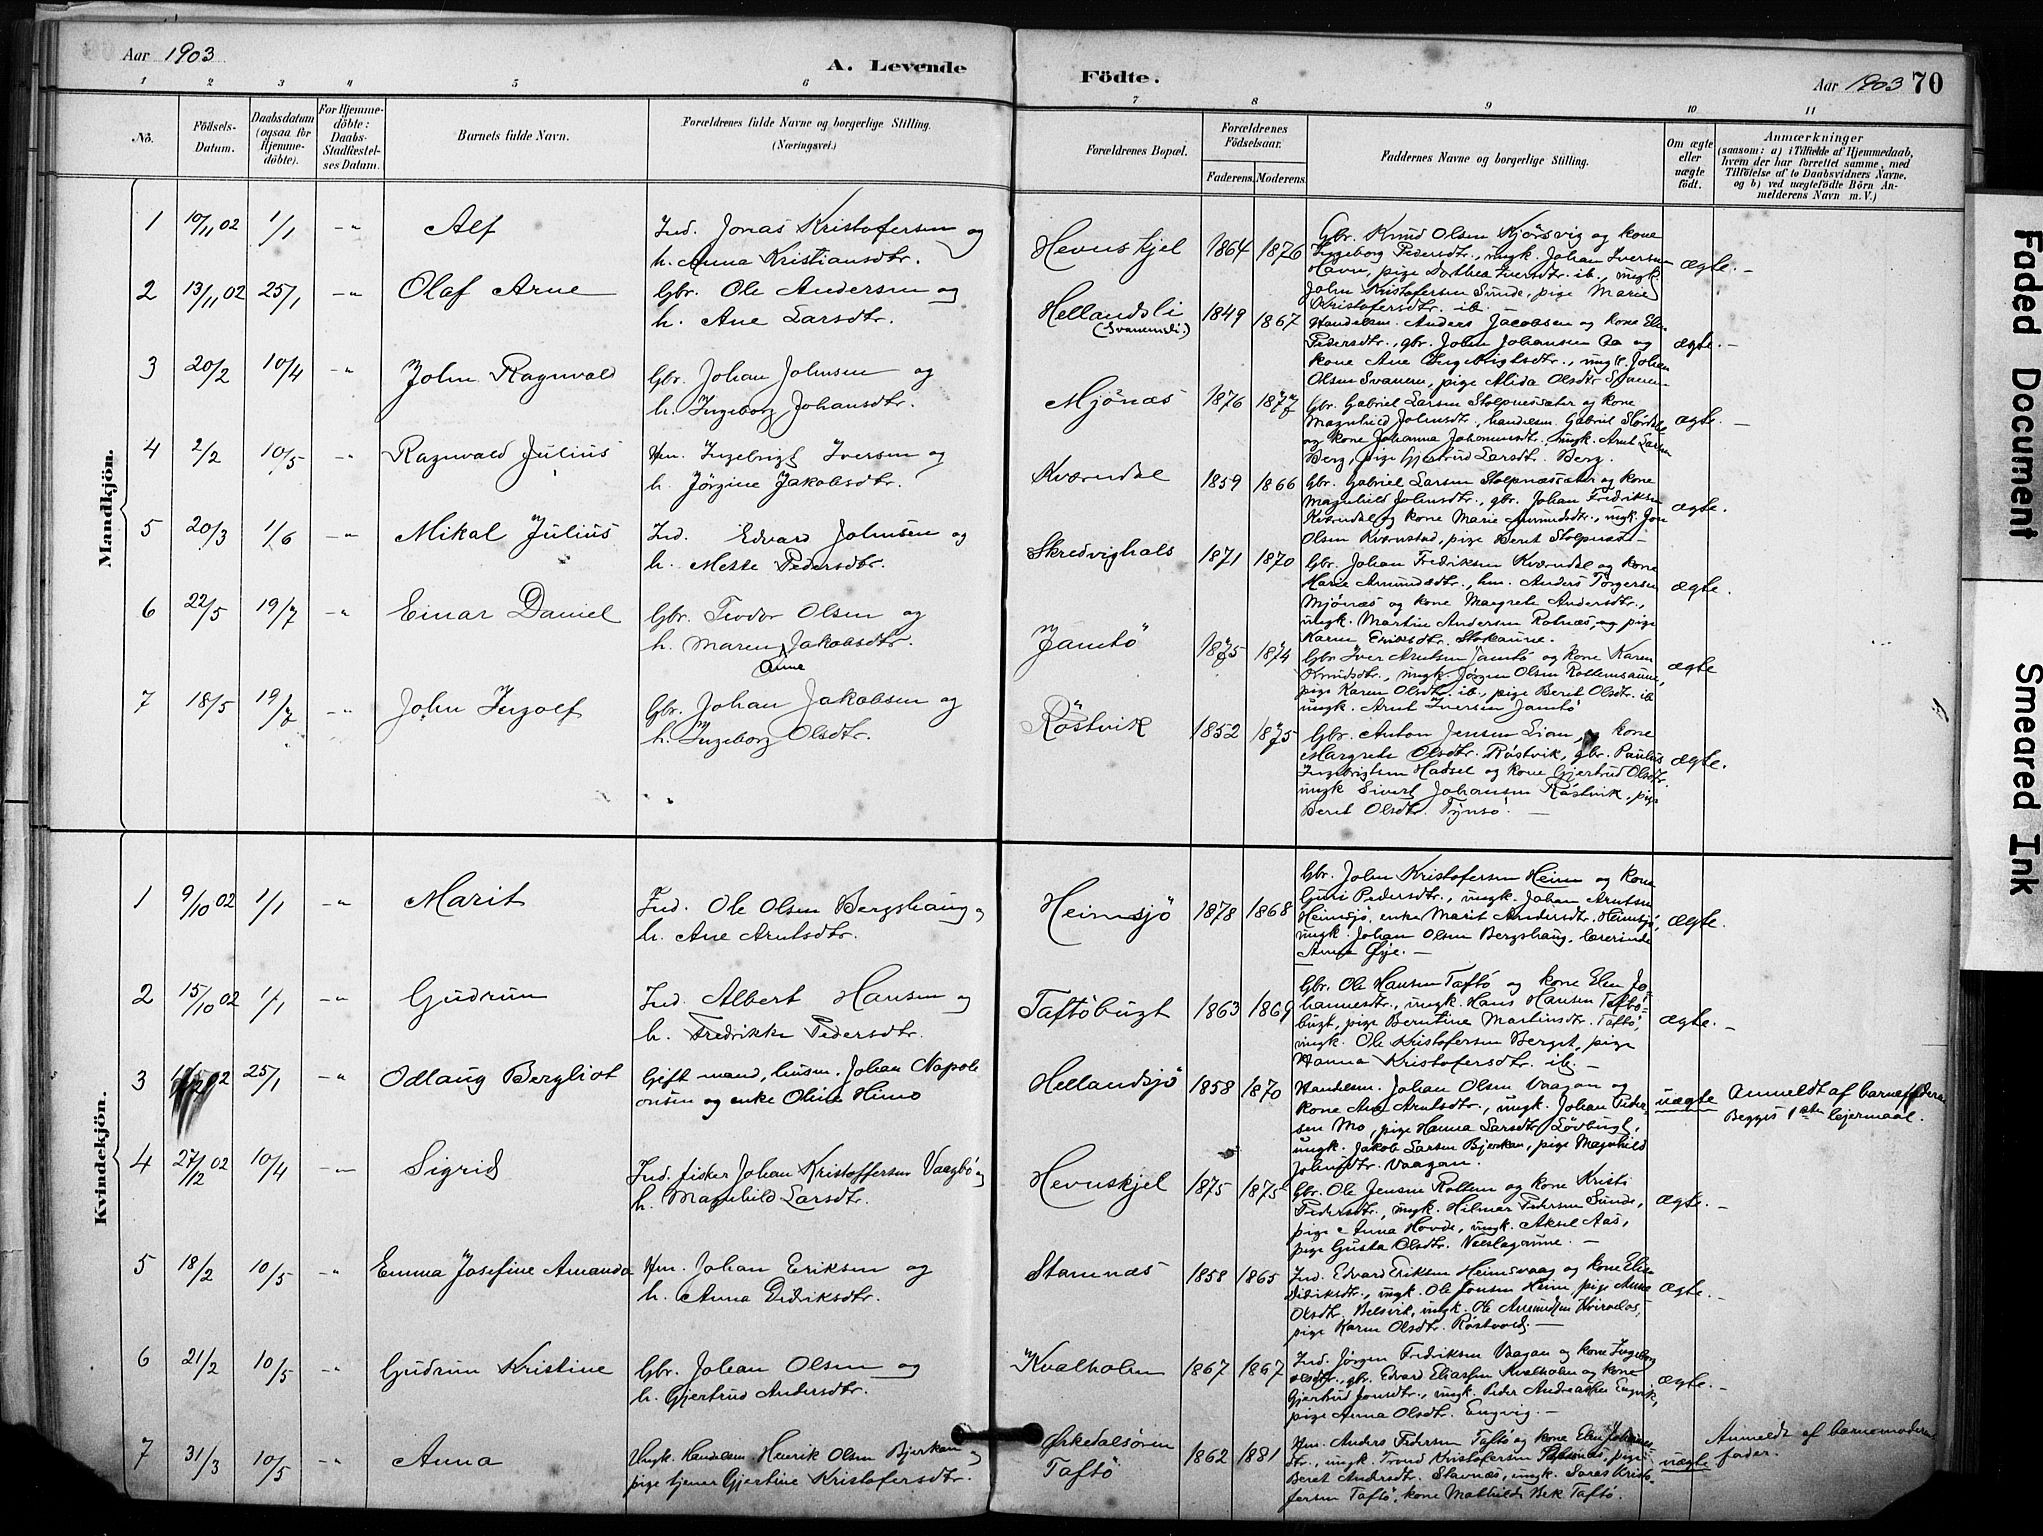 Aar 1903
A. Levende
Födte.
Aar 1903 70
1 2 3 4 5 6 7 8 9 10 11
No.
Födsels-
Datum.
Daabsdatum
(ogsaa for
Hjemme-
döbte).
For Hjemme-
döbte:
Daabs-
Stadfæstel-
ses Datum.
Barnets fulde Navn.
Forældrenes fulde Navne og borgerlige Stilling.
(Næringsvei.)
Forældrenes Bopæl.
Forældrenes
Födselsaar.
Faderens. Moderens.
Faddernes Navne og borgerlige Stilling.
Om ægte
eller
uægte
födt.
Anmærkninger
(saasom: a) i Tilfælde af Hjemmedaab,
hvem der har forrettet samme, med
Tilföielse af to Daabsvidners Navne,
og b) ved uægtefödte Börn An-
melderens Navn m. V.)
Mandkjön.
1 10/11 02 1/1 -"- Alf
Ind. Jonas Kristofersen og
h. Anna Kristiansdtr.
Hevnskjel 1864 1876
Gbr. Knud Olsen Kjörsvig og kone
Ingeborg Pedersdtr., ungk. Johan Iversen
Havn, pige Dorthea Iversdtr. ib., ungk
John Kristofersen Sunde, pige Marie
Kristofersdtr. ib.
ægte. -
2 13/11 02 25/1 -"- Olaf Arne
Gbr. Ole Andersen og
h. Ane Larsdtr.
Hellandsli
(Svanemsli) 1849 1867
Handelsm. Anders Jacobsen og kone Ele-
Pedersdtr., gbr. John Johansen Aa og
kone Ane Ingebrigtsdtr., ungk. Johan
Olsen Svanem, pige Alida Olsdtr
ægte. -
3 20/2 10/4 -"- John Ragnvald
Gbr. Johan Johnsen og
h. Ingeborg Johansdtr.
Mjönæs 1876 1877
Gbr. Gabriel Larsen Stolpnessæter og kone
Magnhild Johnsdtr., handelsm. Gabriel
og kone Johanna Johannesdtr., ungk. Arnt Larsen
Berg, pige Gjertrud Larsdtr. Berg.
ægte. -
4 2/2 10/5 -"- Ragnvald Julius
Hm. Ingebrigt Iversen og
h. Jörgine Jakobsdtr.
Kværndal 1859 1866
Gbr. Gabriel Larsen Stolpnæssæter og kone
Magnhild Johnsdtr., gbr. Johan Fredriksen
Kværndal og kone Marie Amundsdtr., ungk. Jon
Olsen Kværnstad, pige Beret Stolpnæs. -
ægte.
5 20/3 1/6 -"- Mikal Julius
Ind. Edvard Johnsen og
h. Mette Pedersdtr.
Skredvighals 1871 1870
Gbr. Johan Fredriksen Kværndal og kone
Marie Amundsdtr., hm. Anders Torgersen
Mjönæs og kone Margrete Andersdtr.,
ungk. Martin Andersen Rotnæs, og pige
Karen Eriksdtr. Stokaune.
ægte.
6 22/5 19/7 -"- Einar Daniel
Gbr. Teodor Olsen og
h. Maren Jakobsdtr.
Anne
Jamtö 1875 1874
Gbr Iver Arntsen Jamtö og kone Karen
Knudsdtr., ungk. Jörgen Olsen Rottemsaune,
pige Karen Olsdtr. ib., pige Berit Olsdtr. ib
ungk. Arnt Iversen Jamtö
ægte
7 18/5 19/7 -"- John Ingolf
Gbr. Johan Jakobsen og
h. Ingeborg Olsdtr.
Röstvik 1852 1875
Gbr. Anton Jensen Lian, kone
Margrete Olsdtr. Röstvik, gbr. Paulus
Ingebrigtsen Hadsel og kone Gjertrud Olsdtr.
ungk Sivert Johansen Röstvik, pige
Beret Olsdtr. Tynsö. -
ægte.
Kvindekjön.
1 9/10 02 1/1 -"- Marit
Ind. Ole Olsen Bergshaug og
h. Ane Arntsdtr.
Heimsjö 1878 1868
Gbr. John Kristofersen Heim og kone
Guri Pedersdtr., ungk. Johan Arntsen
Heimsjö, enke Marit Andersdtr. Heimsjö,
ungk. Johan Olsen Bergshaug, lærerinde
Anna Öye. -
ægte.
2 15/10 02 1/1 -"- Gudrun
Ind. Albert Hansen og
h. Fredrikke Pedersdtr.
Taftöbugt 1863 1869
Gbr. Ole Hansen Taftö og kone Elen Jo-
hannesdtr., ungk. Hans Hansen Taftö-
bugt, pige Berntine Martinsdtr. Taftö,
ungk. Ole Kristofersen Berget, pige
Hanna Kristofersdtr. ib. -
ægte. -
3 02 25/1 -"- Odlaug Bergliot
Gift mand, husm. Johan Napole
onsen og enke Oline Himo
Hellandsjö 1858 1870
Handelsm. Johan Olsen Vaagan og
kone Ane Arntsdtr., ungk. Johan Peder-
sen Mo, pige Hanna Larsdtr. Lövbugt,
ungk. Jakob Larsen Bjerkan, pige Magnhild
Johnsdtr. Vaagan.
uægte Anmeldt af barnefaderen
Begges 1ste leiermaal.
4 27/12 02 10/4 -"- Sigrid
Ind. fisker Johan Kristoffersen Vaagbö og
h. Magnhild Larsdtr.
Hevnskjel 1875 1875
Gbr. Ole Jensen Rottem og kone Kristi
Pedersdtr., ungk. Hilmar Pedersen Sunde,
pige Anna Hovde, ungk. Aksel Aas,
pige Gusta Olsdtr. Væslagaune. -
ægte. -
5 18/2 10/5 -"- Emma Josefine Amanda
Hm. Johan Eriksen og
h. Anna Didriksdtr.
Stamnæs 1858 1865
Ind. Edvard Eriksen Heimsvaag og kone Elen
Didriksdtr., ungk. Ole Jonsen Heim, pige Anne
Olsdtr. Belsvik, ungk. Ole Amundsen
pige Karen Olsdtr. Röstvold. -
ægte. -
6 21/2 10/5 -"- Gudrun Kristine
Gbr. Johan Olsen og
h. Gjertrud Andersdtr.
Kvalholm 1867 1867
Ind. Jörgen Fredriksen Vaagan og kone Ingeborg
Olsdtr., gbr. Edvard Eliassen Kvalholm og kone
Gjertrud Jonsdtr., ungk. Peder Andreassen Engvik,
pige Anna Olsdtr. Engvig. -
ægte. -
7 31/3 10/5 -"- Anna
Ungk. Handelsm. Henrik Olsen Bjerkan og
pige tjener Gjertine Kristofersdtr.
Örkedalsören
Taftö 1862 1881
Hm. Anders Pedersen Taftö og kone Elen Johannes-
dtr., ungk. Trond Kristofersen, pige
Beret Andersdtr. Stavnæs, ungk. Lars Kristo-
fersen Taftö, kone Mathilde Bek Taftö.
uægte Anmeldt af barnemoderens
fader.
Faded Document Smeared Ink